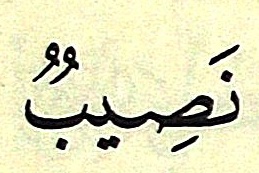 نَصِيبٌ